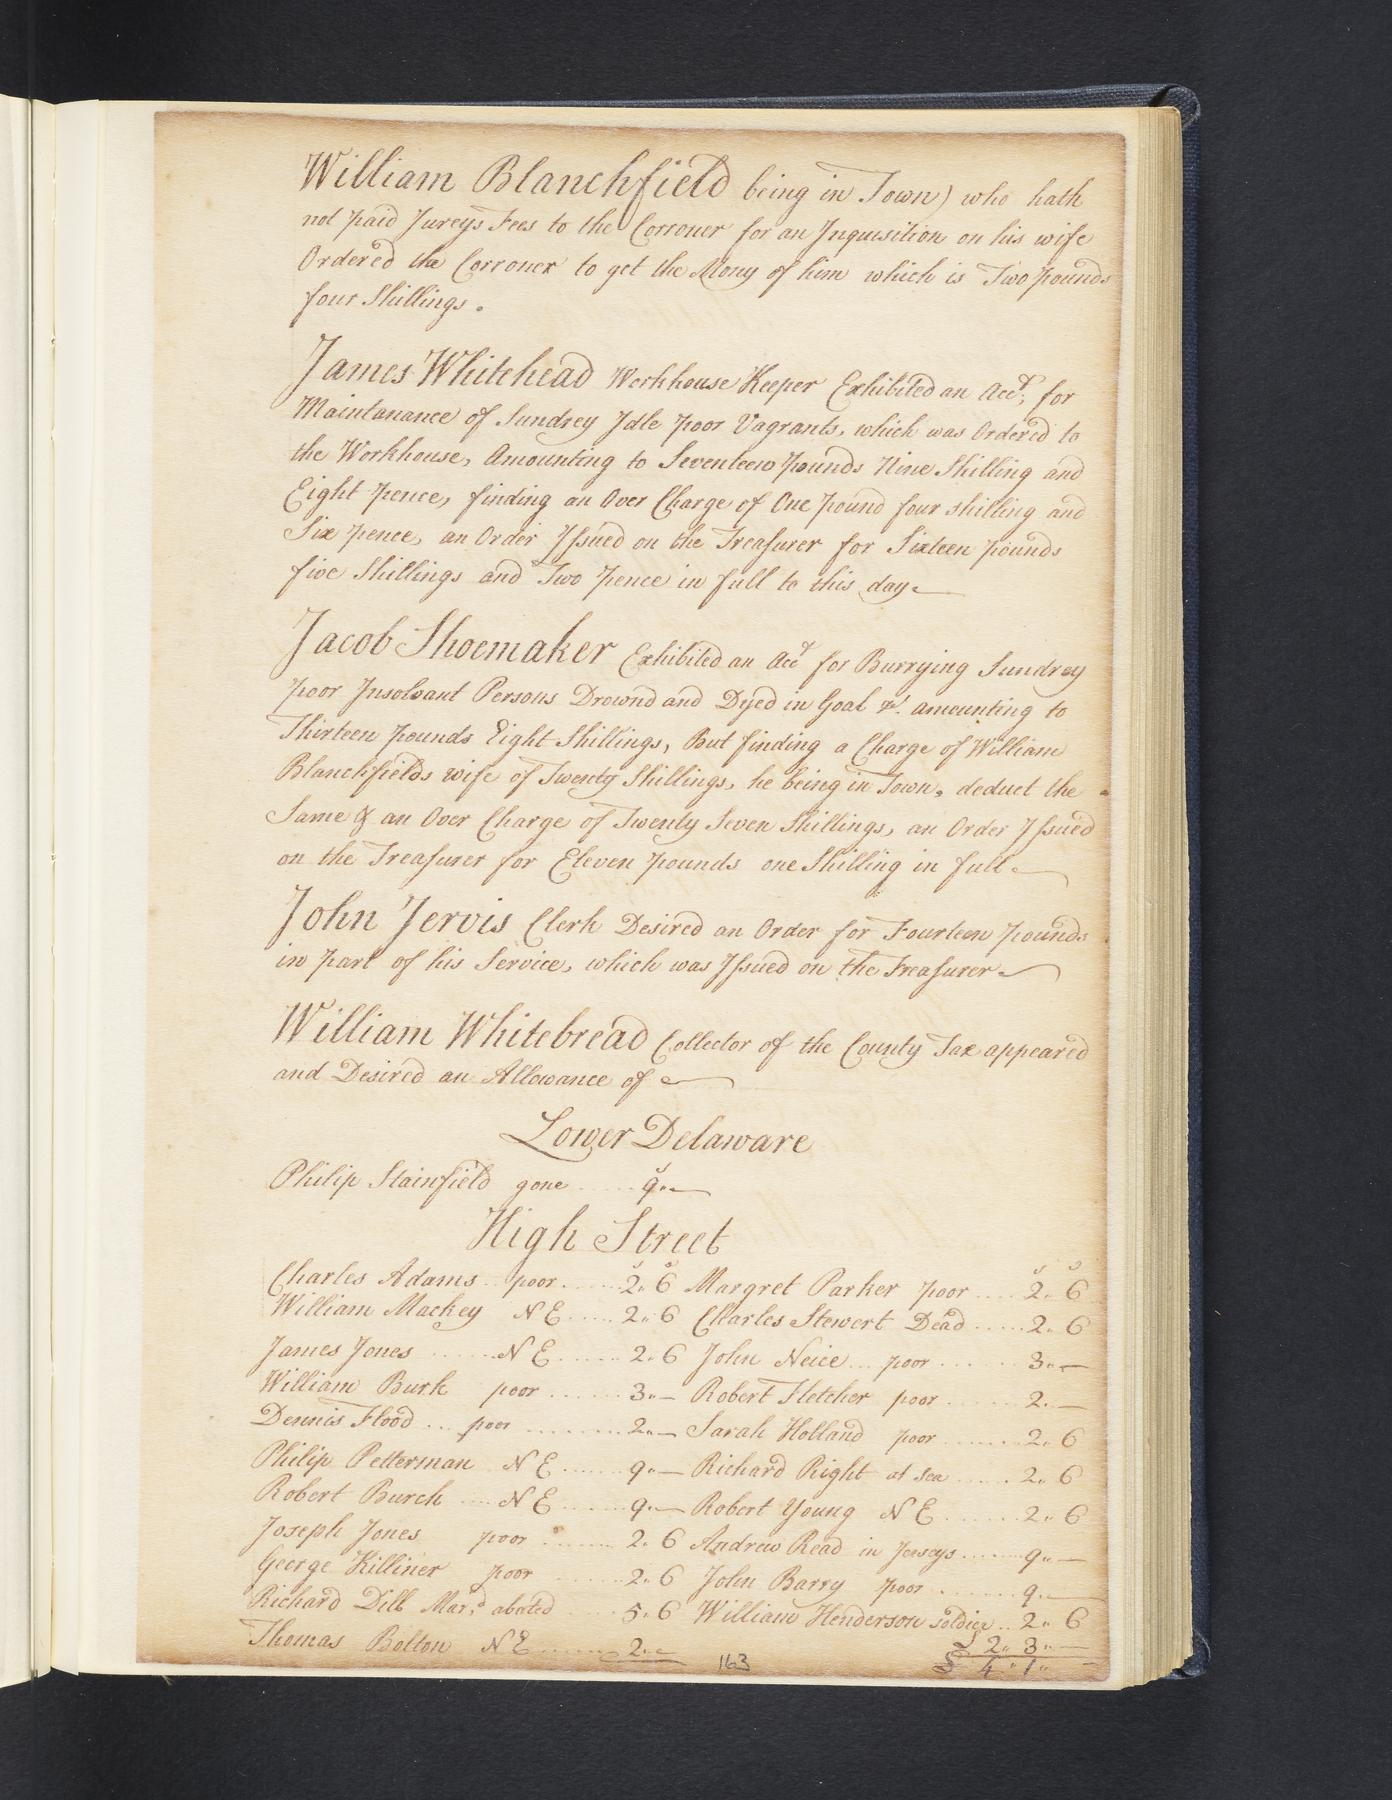 William Blanchfield being in Town) who hath
not paid Jureys Fees to the Corroner for an Inquisition on his wife
Ordered the Corroner to get the Mony of him which is Two pounds
four Shillings.
James Whitehead Workhouse Keeper Exhibited an Acct. for
Maintanance of Sundrey Idle poor Vagrants, which was Ordered to
the Workhouse, Amounting to Seventeen pounds Nine Shilling and
Eight pence, finding an Over Charge of One pound four shilling and
Six pence, an Order Issued on the Treasurer for Sixteen pounds
five Shillings and Two pence in full to this day
Jacob Shoemaker Exhibited an Acct for Burrying Sundrey
poor Insolvant Persons Drownd and Dyed in Goal &c. amounting to
Thirteen pounds Eight Shillings, But finding a Charge of William
Blanchfields wife of Twenty Shillings, he being in Town, deduct the
Same & an Over Charge of Twenty Seven Shillings, an Order Issued
on the Treasurer for Eleven pounds one Shilling in full
John Jervis Clerk Desired an Order for Fourteen pounds
in part of his Service, which was Issued on the Treasurer
William Whitebread Collector of the County Tax appeared
and Desired an Allowance of
Lower Delaware
s
Philip Stainfield gone 9"—
High Street
Charles Adams poor 2" 6 Margret Parker poor 2" 6
William Mackey N E 2" 6 Charles Stewert Dead 2" 6
James Jones N E 2" 6 John Neice poor 3"—
William Burk poor 3"— Robert Fletcher poor 2"—
Dennis Flood poor 2"— Sarah Holland poor 2" 6
Philip Petterman N E 9"— Richard Right at sea 2" 6
Robert Burch N E 9"— Robert Young N E 2" 6
Joseph Jones poor 2" 6 Andrew Read in Jerseys 9"—
George Killiner poor 2" 6 John Barry poor 9"—
Richard Dill Mard. abated 5" 6 William Henderson soldier 2" 6
Thomas Bolton N E 2"— £ 2" 3"—
163 £ 4" 1"—